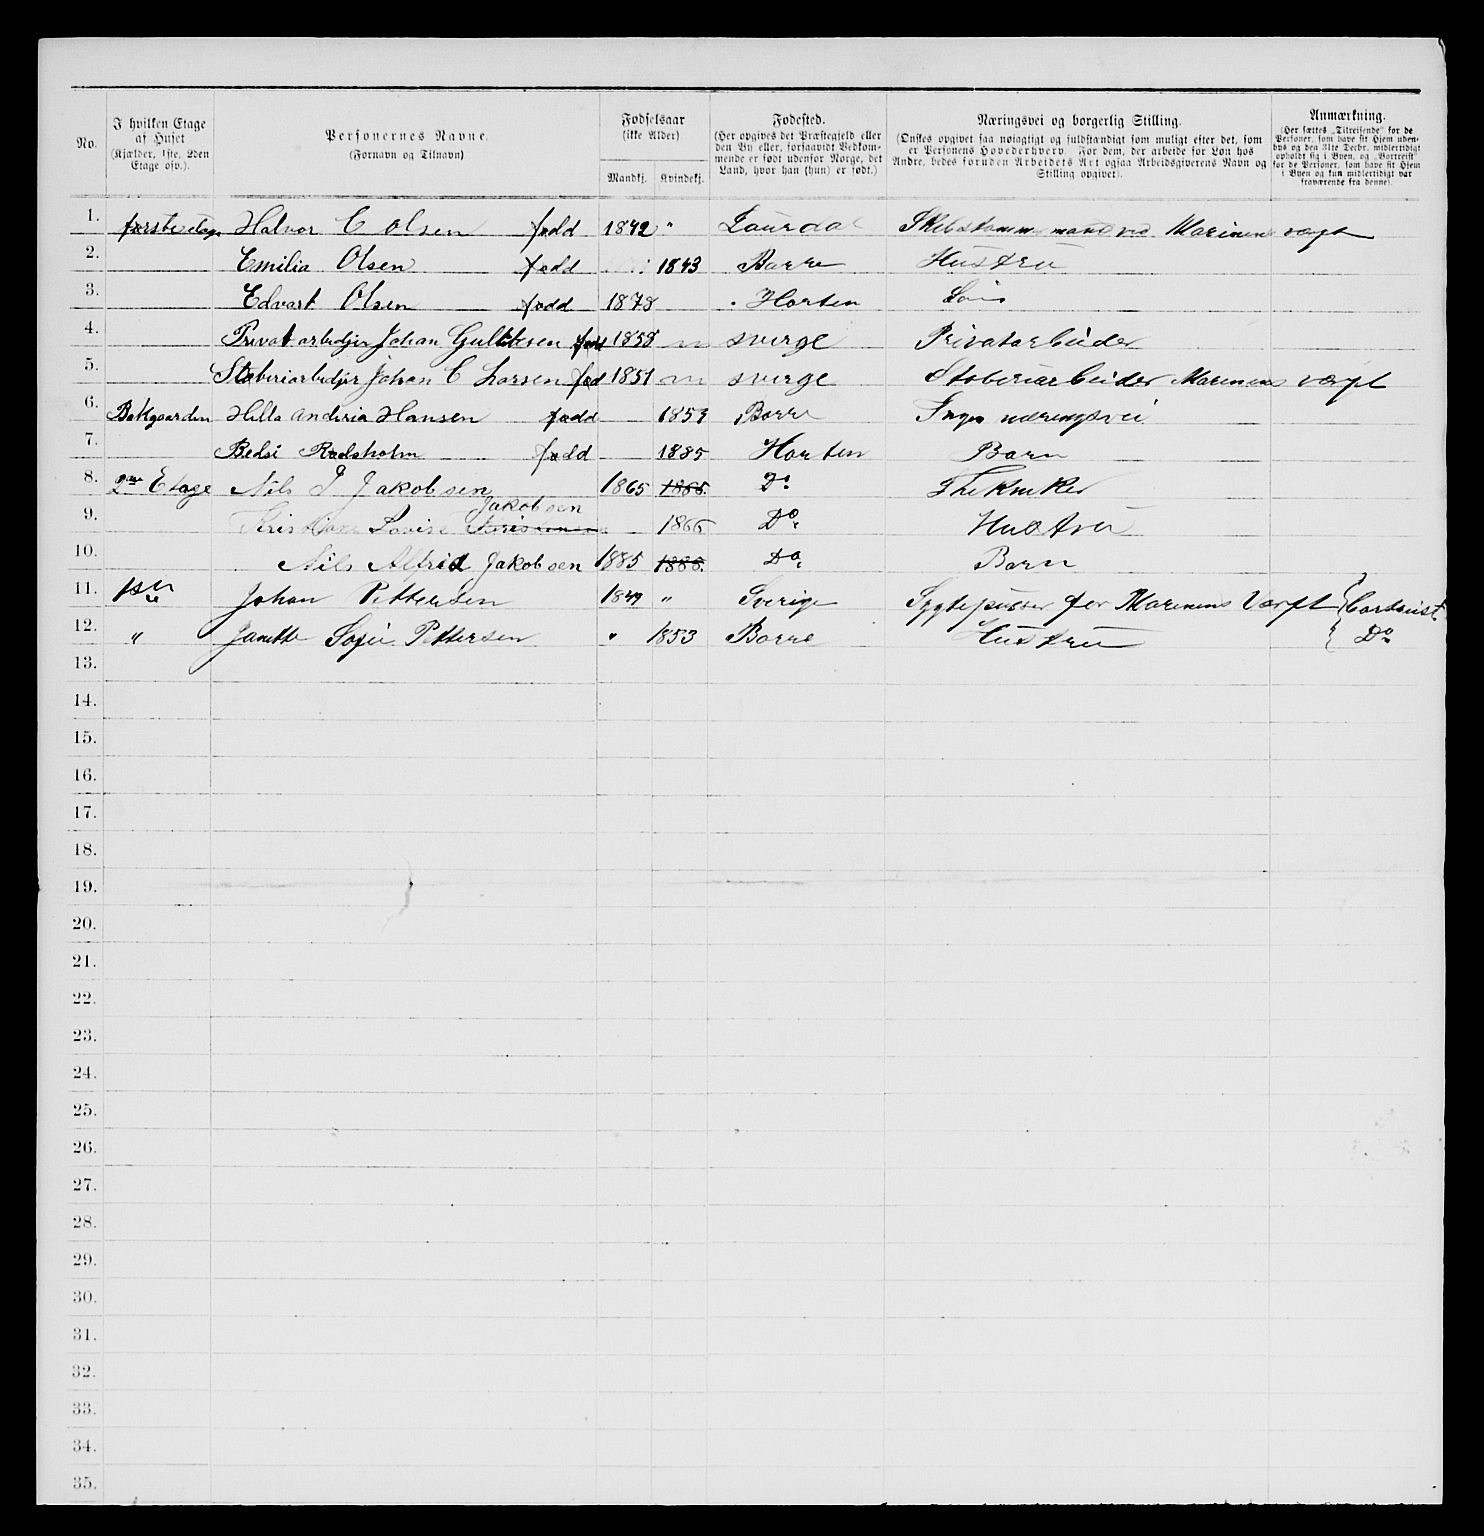 No.
I hvilken Etage af Huset (Kjælder, 1ste, 2den Etage osv.).
Personernes Navne. (Fornavn og Tilnavn)
Fødselsaar (ikke Alder) Mandkj. Kvindekj.
Fødested. (Her opgives det Præstegjeld eller den By eller, forsaavidt Bedkommende er født udenfor Norge, det Land, hvor han (hun) er født.)
Næringsvei og borgerlig Stilling. (Ønskes opgivet saa nøiagtigt og fuldstændigt som muligt efter det, som er Personens Hovederhverv. For dem, der arbeide for Løn hos Andre, bedes foruden Arbeidets Art ogsaa Arbeidsgiverens Navn og Stilling opgivet).
Anmærkning. (Her sættes „Tilreisende" for de Personer, som have sit Hjem udenbys og den 31te Decbr. midlertidigt opholdt sig i Byen, og „Bortreist" for de Personer, som have sit Hjem i Byen og kun midlertidigt var fraværende fra denne).
1. første etage Halvor C Olsen fødd 1842 " Laurdal Skibstømmermand ved Marinens værft
2. Emilia Olsen fødd 1843 Borre Hustru
3. Edvart Olsen fødd 1878 Horten Søn
4. Privatarbedjer Johan Gulbtesen fød 1858 " sverge Privatarbeider
5. Støberiarbedjer Johan C Larsen fød 1851 " sverge Støberiarbeider Marinens værft
6. Bakgaarden Hilla Andiria Hansen fødd 1853 Borre Ingen næringsvei
7. Bedsi Rødsholm fødd 1885 Horten Barn
8. 2den Etage Nils J Jakobsen 1865 1886. Do
Jakobsen
9. Lovise 1866 Do Hustru
10. Nils Alfrid Jakobsen 1885 1886. Do Barn
11. 1ste Johan Pettersen 1849 " Sverige Lygtepusser for Marinens Værft Bortreist
12. " Janette Sofie Pettersen " 1853 Borre Hustru Do
13.
14.
15.
16.
17.
18.
19.
20.
21.
22.
23.
24.
25.
26.
27.
28.
29.
30.
31.
32.
33.
34.
35.